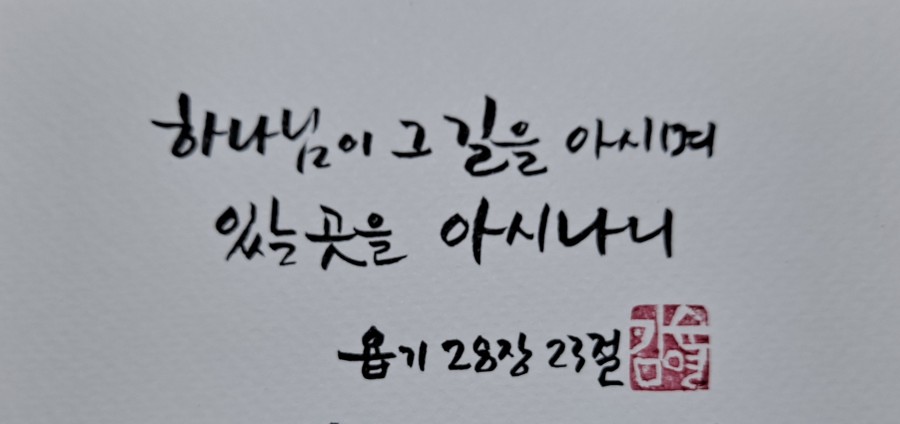 하나님이 그 길을 아시며
있는 곳을 아시나니
욥기 28장 23절